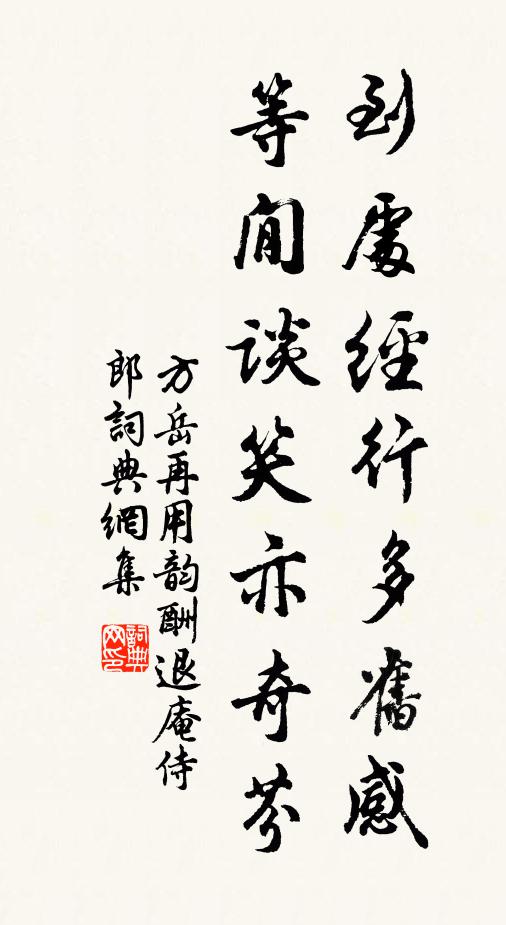 到處經行多舊感
等閒談笑亦奇芬
方岳再用韵酬退庵侍
郎詞典網集
詞典网印